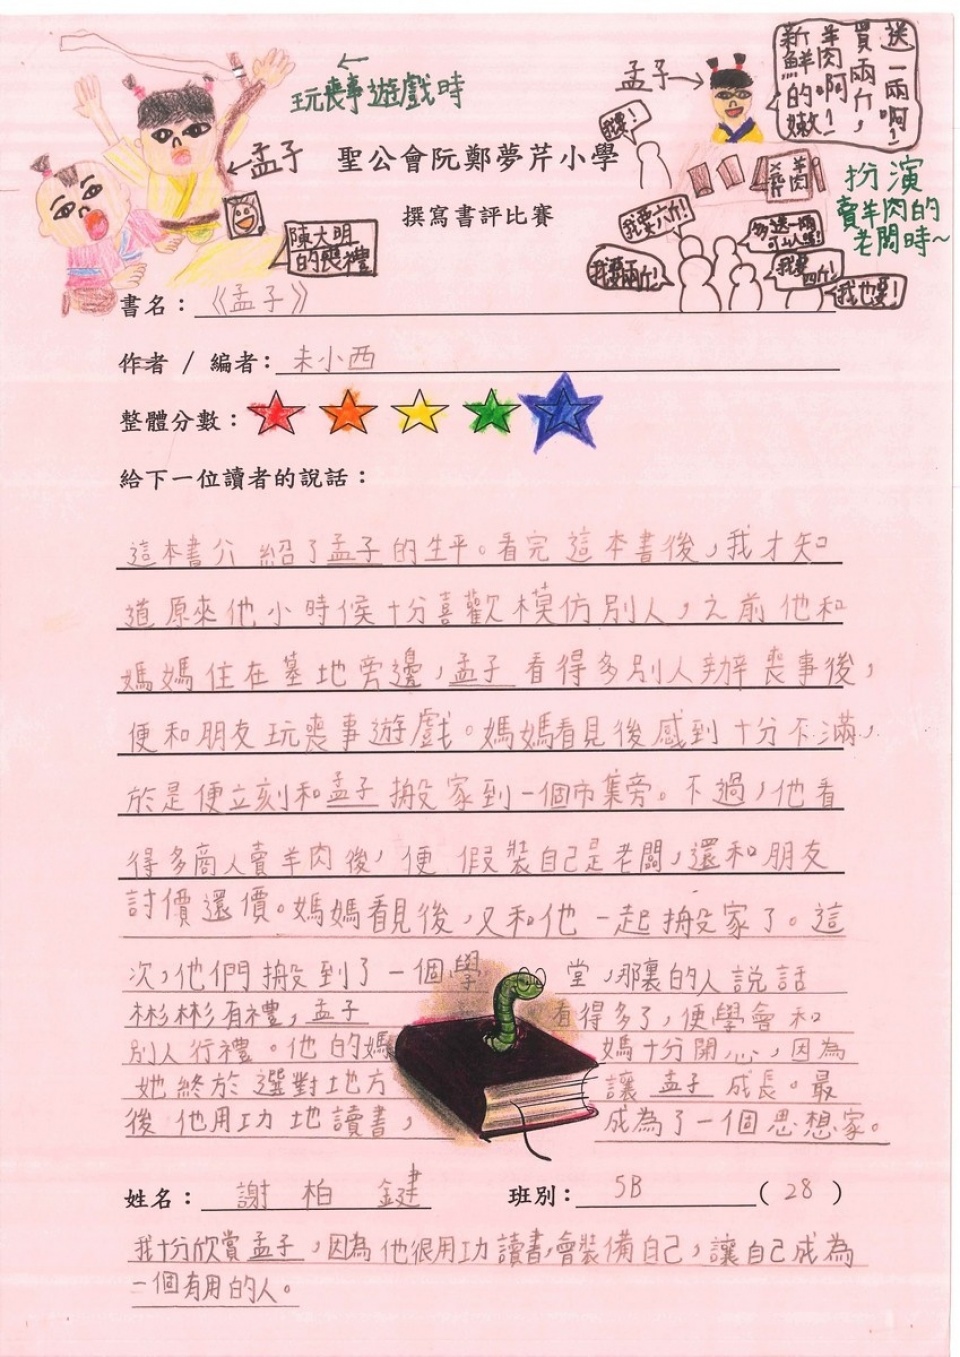 玩喪事遊戲時
孟子
陳大明
的喪禮
孟子
送一兩啊!
買兩斤,
羊肉啊!
新鮮的嫩
我要!
羊肉
我要六斤!
我要兩斤!
多送一兩
可以嗎!
我要
四斤!
我也要!
扮演
賣羊肉的
老闆時~
聖公會阮鄭夢芹小學
撰寫書評比賽
書名:《孟子》
作者 / 編者:未小西
整體分數:
給下一位讀者的說話:
這本書介紹了孟子的生平。看完這本書後,我才知
道原來他小時候十分喜歡模仿別人,之前他和
媽媽住在墓地旁邊,孟子看得多別人辦喪事後,
便和朋友玩喪事遊戲。媽媽看見後感到十分不滿,
於是便立刻和孟子搬家到一個市集旁。不過,他看
得多商人賣羊肉後,便假裝自己是老闆,還和朋友
討價還價。媽媽看見後,又和他一起搬家了。這
次,他們搬到了一個學堂,那裏的人說話
彬彬有禮,孟子看得多了,便學會和
別人行禮。他的媽媽十分開心,因為
她終於選對地方讓孟子成長。最
後他用功地讀書,成為了一個思想家。
姓名:謝柏鍵 班別:5B (28)
我十分欣賞孟子,因為他很用功讀書,會裝備自己,讓自己成為
一個有用的人。